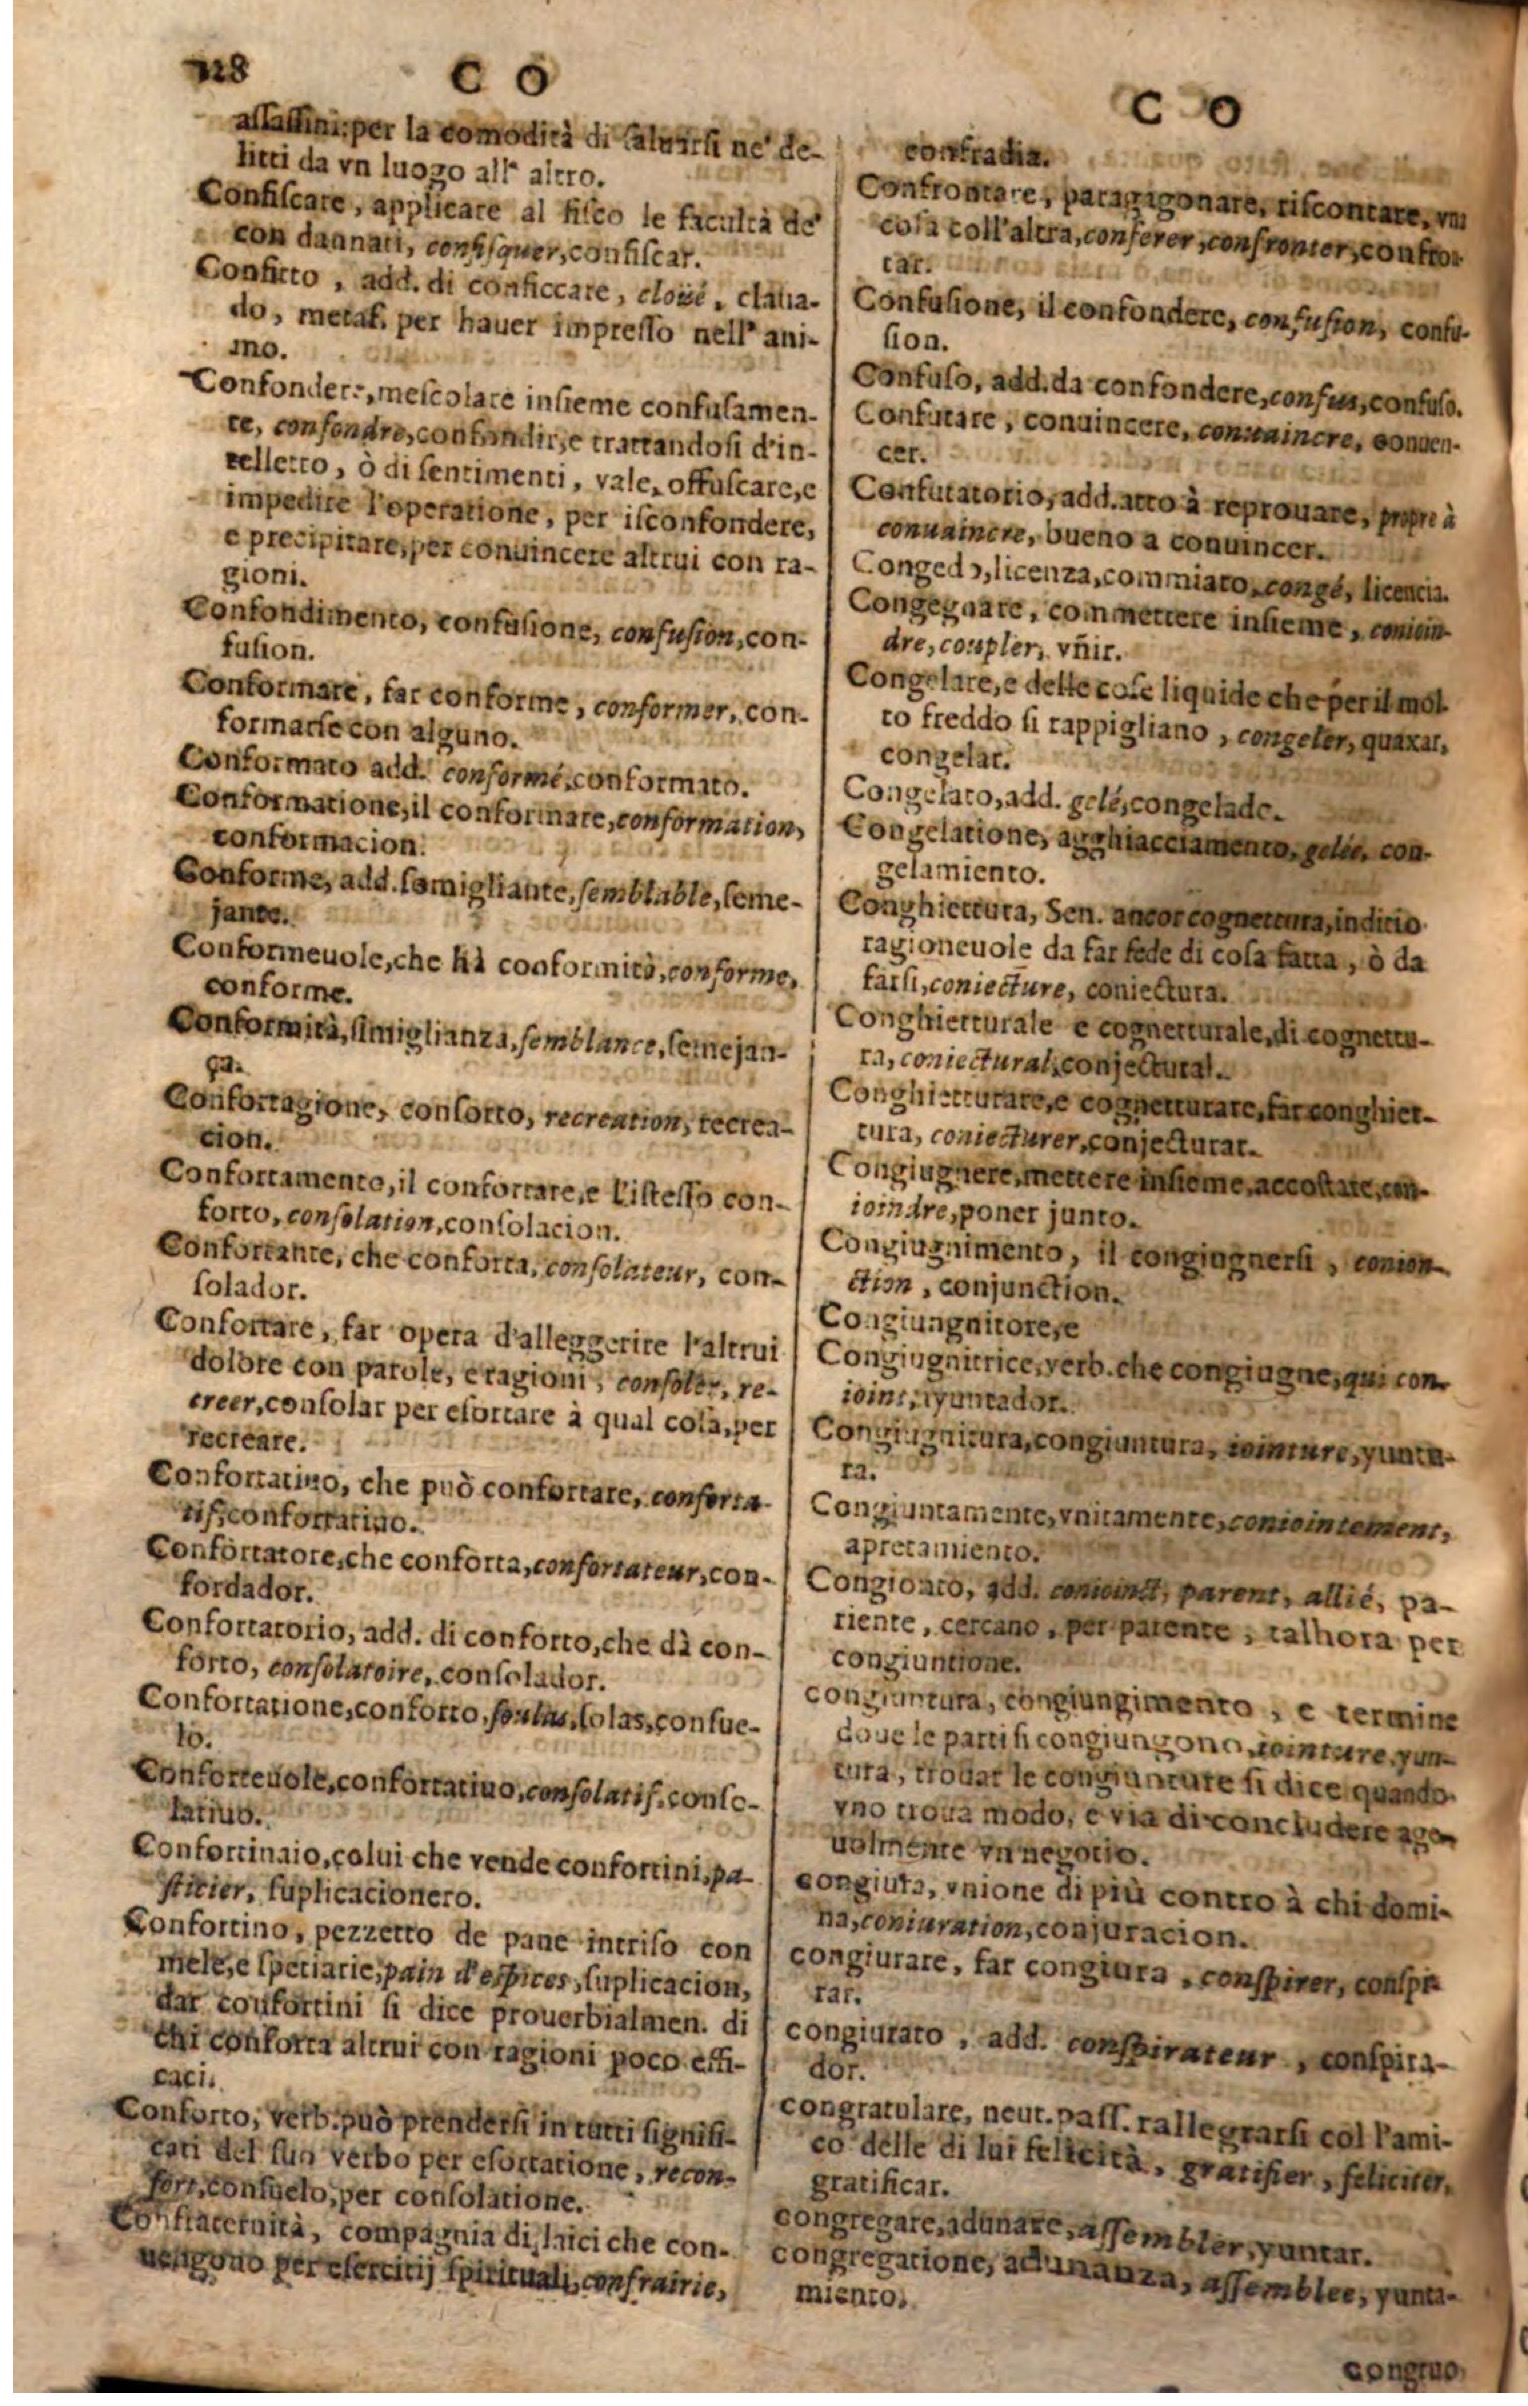 128
C O
assassini: per la comodità di saluarsi ne' de-
litti da vn luogo all' altro.
Confiscare, applicare al fisco le facultà de'
con dannati, confisquer, confiscar.
Confitto, add. di conficcare, cloüé, claua-
do, metaf. per hauer impresso nell' ani-
mo.
Confondere, mescolare insieme confusamen-
te, confondre, confondir, e trattandosi d'in-
telletto, ò di sentimenti, vale, offuscare, e
impedire l'operatione, per isconfondere,
e precipitare, per conuincere altrui con ra-
gioni.
Confondimento, confusione, confusion, con-
fusion.
Conformare, far conforme, conformer, con-
formarse con alguno.
Conformato add. conformé, conformato.
Conformatione, il conformare, conformation,
conformacion.
Conforme, add. somigliante, semblable, seme-
jante.
Conformeuole, che hà conformità, conforme,
conforme.
Conformità, simiglianza, semblance, semejan-
ça.
Confortagione, conforto, recreation, recrea-
cion.
Confortamento, il confortare, e l'istesso con-
forto, consolation, consolacion.
Confortante, che conforta, consolateur, con-
solador.
Confortare, far opera d'alleggerire l'altrui
dolore con parole, e ragioni, consoler, re-
creer, consolar per esortare à qual cosa, per
recreare.
Confortatiuo, che può confortare, conforta-
tif, confortatiuo.
Confortatore, che conforta, confortateur, con-
fordador.
Confortatorio, add. di conforto, che dà con-
forto, consolatoire, consolador.
Confortatione, conforto, soulas, solas, consue-
lo.
Conforteuole, confortatiuo, consolatif, conso-
latiuo.
Confortinaio, colui che vende confortini, pa-
sticier, suplicacionero.
Confortino, pezzetto de pane intriso con
mele, e spetiarie, pain d'espices, suplicacion,
dar confortini si dice prouerbialmen. di
chi conforta altrui con ragioni poco effi-
caci.
Conforto, verb. può prendersi in tutti signifi-
cati del suo verbo per esortatione, recon-
fort, consuelo, per consolatione.
Confraternità, compagnia di laici che con-
uengono per esercitij spirituali, confrairie,
C O
confradia.
Confrontare, paragagonare, riscontare, vna
cosa coll'altra, conferer, confronter, confron-
tar.
Confusione, il confondere, confusion, confu-
sion.
Confuso, add. da confondere, confus, confuso.
Confutare, conuincere, conuaincre, conuen-
cer.
Confutatorio, add. atto à reprouare, propre à
conuaincre, bueno a conuincer.
Congedo, licenza, commiato, congé, licencia.
Congegnare, commettere insieme, conioin-
dre, coupler, vñir.
Congelare, e delle cose liquide che per il mol-
to freddo si rappigliano, congeler, quaxar,
congelar.
Congelato, add. gelé, congelado.
Congelatione, agghiacciamento, gelée, con-
gelamiento.
Conghiettura, Sen. ancor cognettura, inditio
ragioneuole da far fede di cosa fatta, ò da
farsi, coniecture, coniectura.
Conghietturale e cognetturale, di cognettu-
ra, coniectural, conjectural.
Conghietturare, e cognetturare, far conghiet-
tura, coniecturer, conjecturar.
Congiugnere, mettere insieme, accostare, con-
ioindre, poner junto.
Congiugnimento, il congiugnersi, conion-
ction, conjunction.
Congiungnitore, e
Congiugnitrice, verb. che congiugne, qui con-
ioint, ayuntador.
Congiugnitura, congiuntura, iointure, yuntu-
ra.
Congiuntamente, vnitamente, coniointement,
apretamiento.
Congionto, add. conioinct, parent, allié, pa-
riente, cercano, per parente, talhora per
congiuntione.
congiuntura, congiungimento, e termine
doue le parti si congiungono, iointure, yun-
tura, trouar le congiunture si dice quando
vno troua modo, e via di concludere age-
uolmente vn negotio.
congiura, vnione di più contro à chi domi-
na, coniuration, conjuracion.
congiurare, far congiura, conspirer, conspi-
rar.
congiurato, add. conspirateur, conspira-
dor.
congratulare, neut. pass. rallegrarsi col l'ami-
co delle di lui felicità, gratifier, feliciter,
gratificar.
congregare, adunare, assembler, yuntar.
congregatione, adunanza, assemblee, yunta-
miento.
congruo